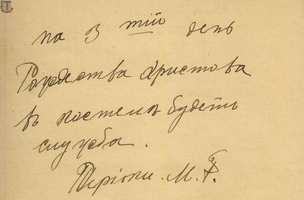 на 3 тій день
Рождества Христова
в постель будеть
служба.
М.